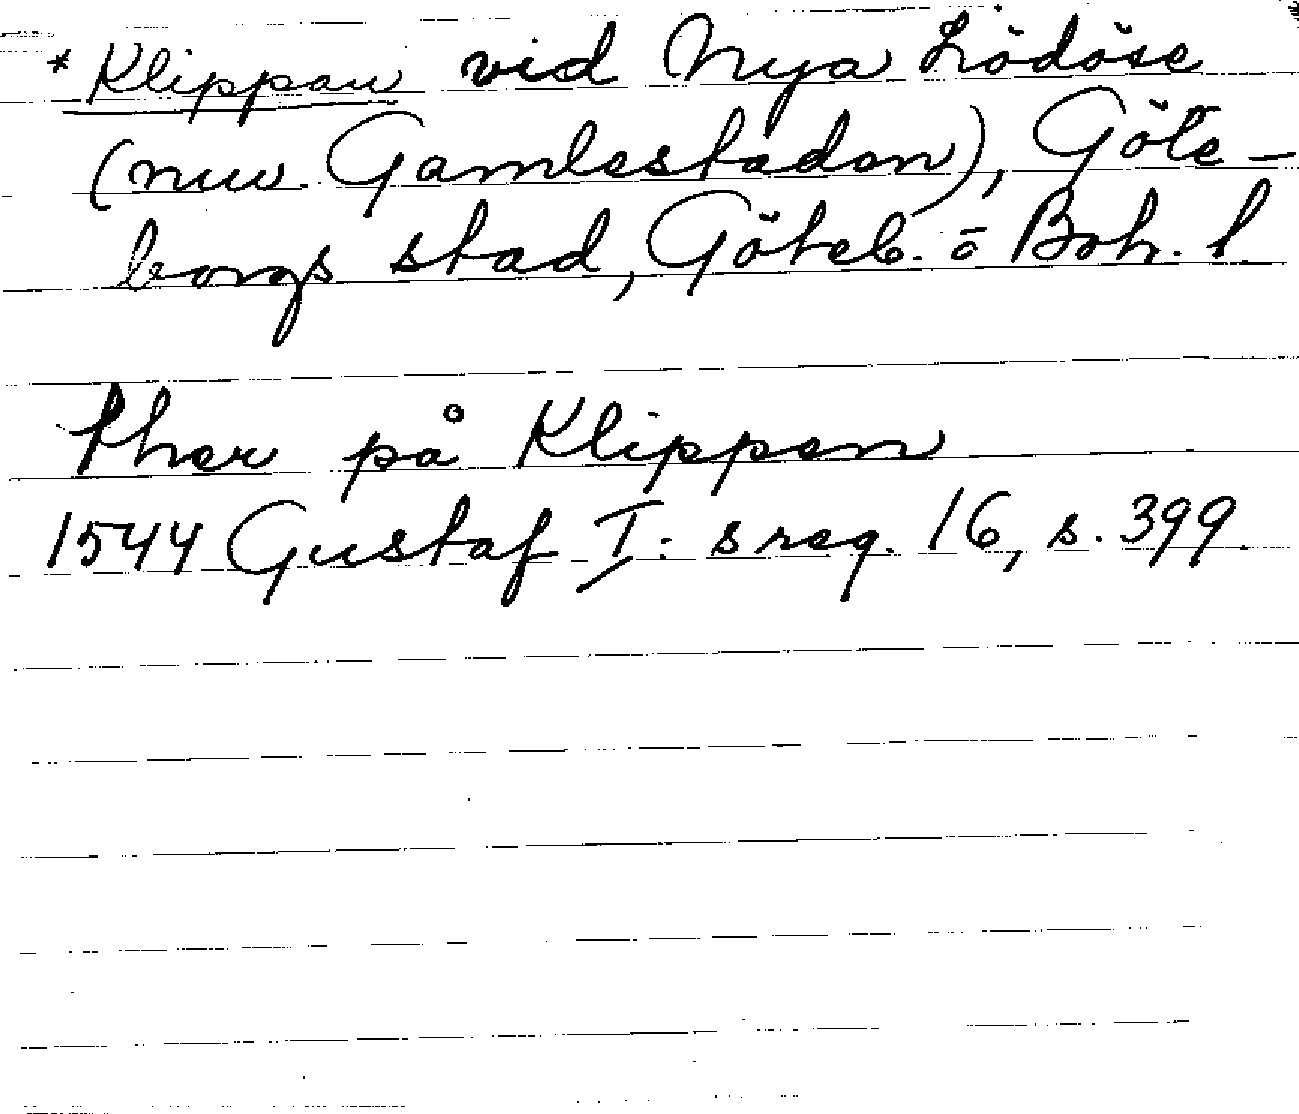 * Klippan vid Nya Lödöse
(nuv. Gamlestaden), Göte-
borgs stad, Göteb. o Boh. l
ther på Klippen
1544 Gustaf I: s reg. 16, s. 399.